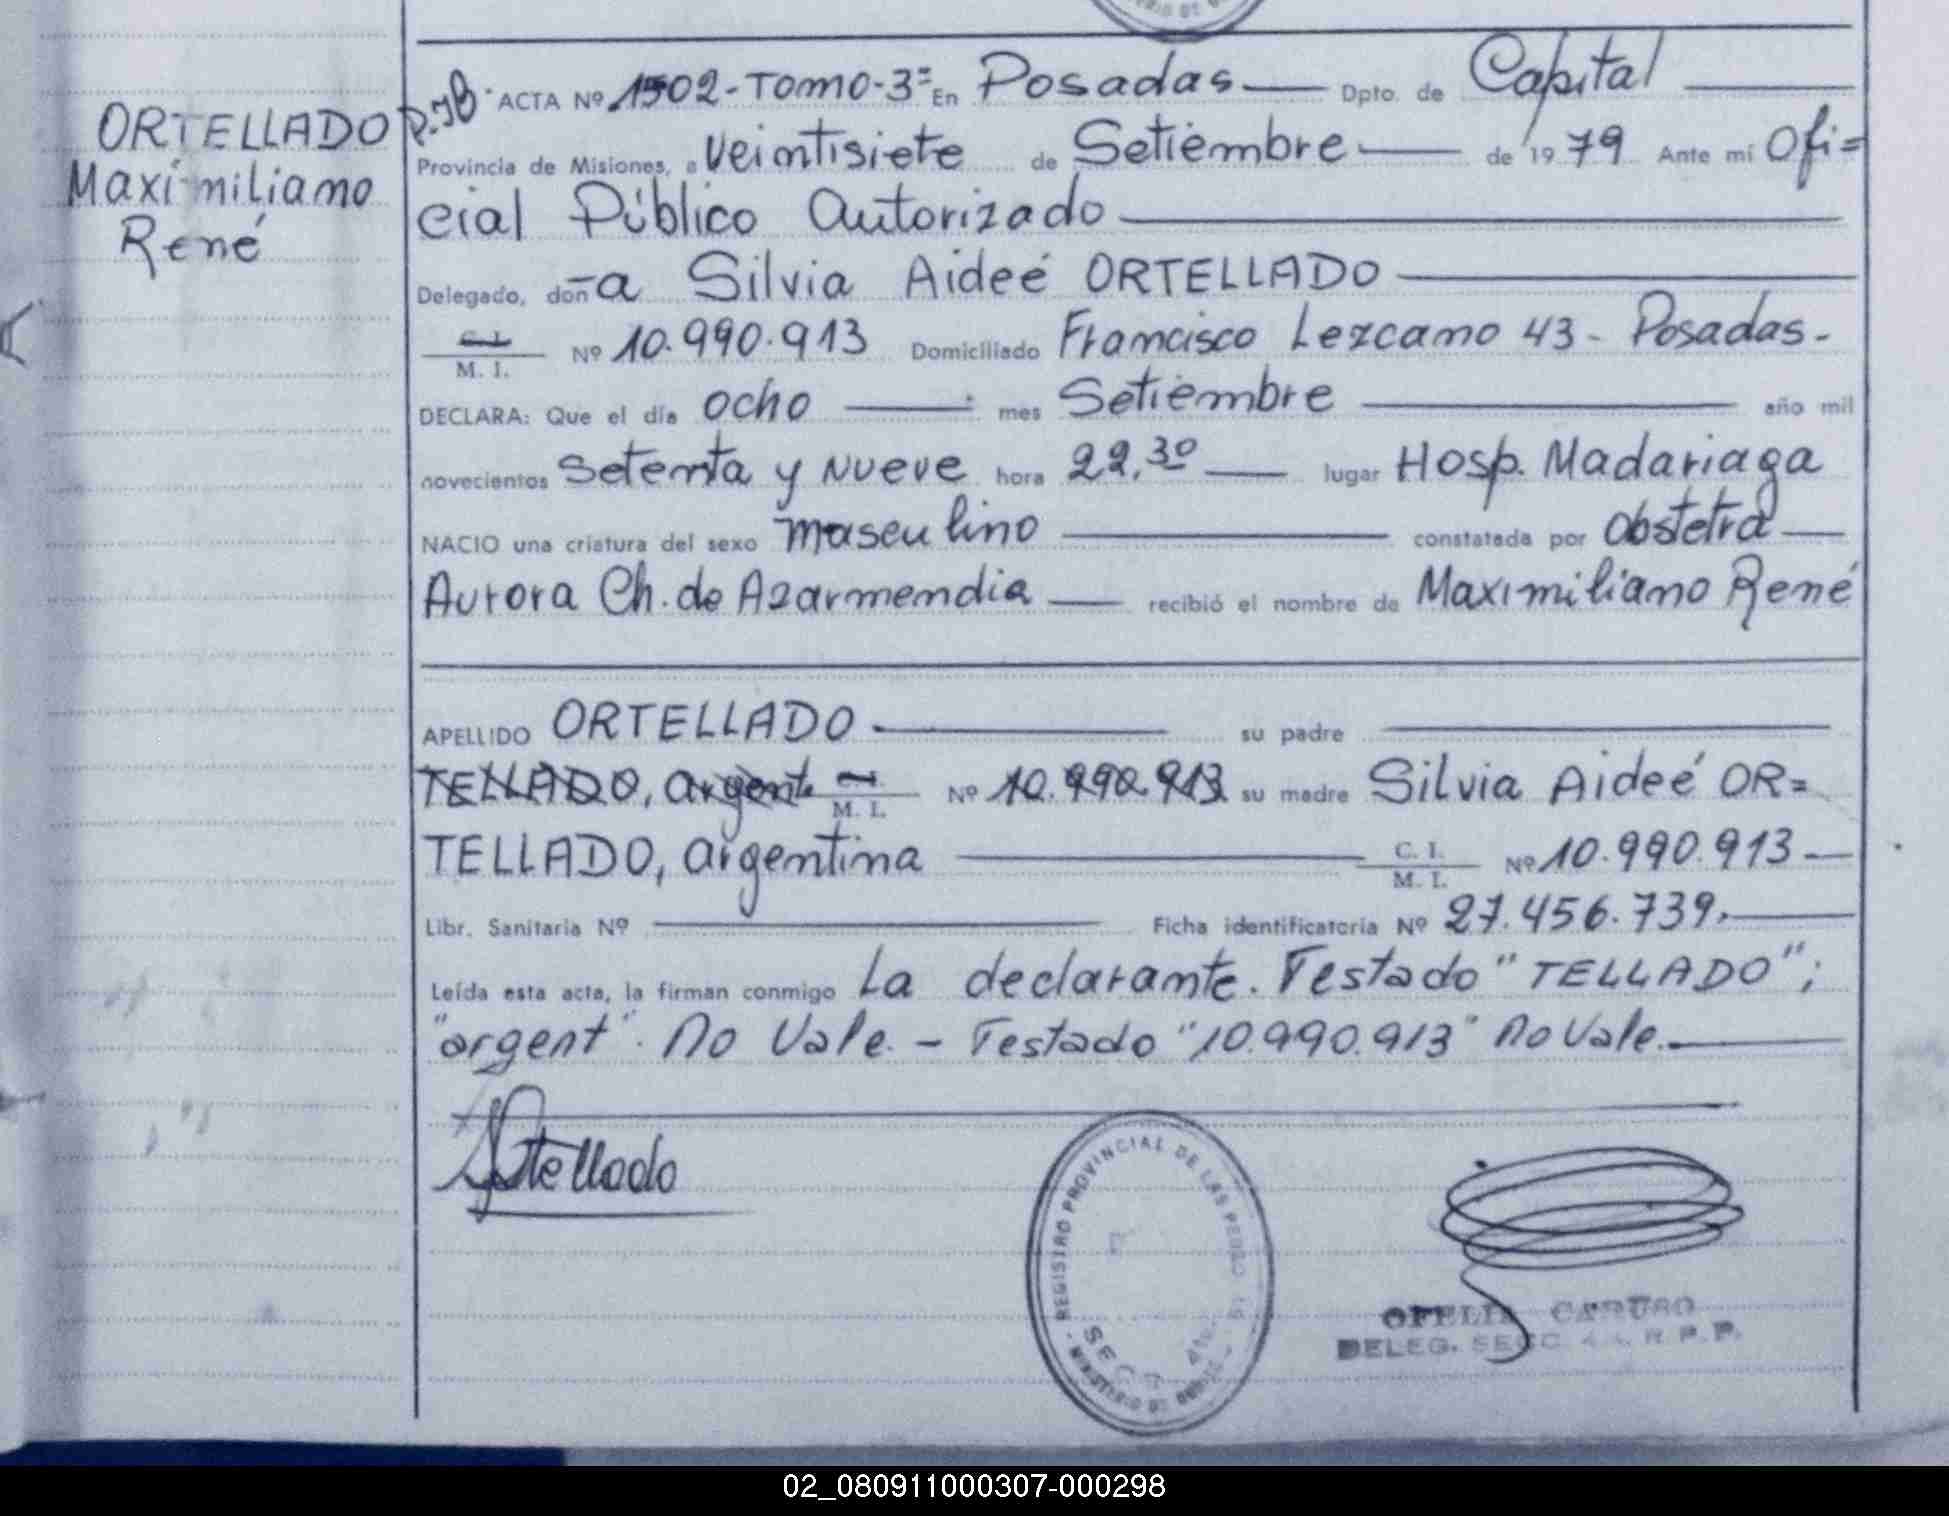 ORTELLADO
Maximiliano
René
ACTA Nº 1502-TOMO-3º En Posadas Dpto. de Capital
Provincia de Misiones, a veintisiete de Setiembre de 1979 Ante mí Ofi=
cial Público Autorizado
Delegado, don-a Silvia Aideé ORTELLADO
C. I.
M. I. Nº 10.990.913 Domiciliado Francisco Lezcano 43 - Posadas -
DECLARA: Que el día ocho mes Setiembre año mil
novecientos setenta y nueve hora 22.30 lugar Hosp. Madariaga
NACIO una criatura del sexo masculino constatada por obstetra
Aurora Ch. de Azarmendia recibió el nombre de Maximiliano René
APELLIDO ORTELLADO su padre
TELLADO, argent C. I.
M. I. Nº 10.990.913 su madre Silvia Aideé OR=
TELLADO, argentina C. I.
M. I. Nº 10.990.913
Libr. Sanitaria Nº Ficha identificatoria Nº 27.456.739.
Leída esta acta, la firman conmigo La declarante. Testado "TELLADO";
"argent". no Vale. - Testado "10.990.913" no Vale.
Ortellado
REGISTRO PROVINCIAL DE LAS PERSONAS
SECC
MINISTERIO DE
OFELIA CARUSO
DELEG. SECC. R. P. P.
02_080911000307-000298